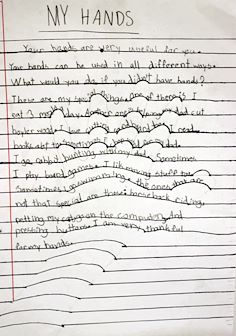 MY HANDS
Your hands are very useful for you.
Your hands can be used in all different ways.
What would you do if you didn't have hands?
These are my special things. one of there is I
eat 3 my day. for
boyler wood. I love getting good and I read
books alot to
I go rabbit hunting with my dad. Sometimes
I play board games. I lik moving stuff too.
Sometimes I go swimming. the ones that are
not that special are these: horseback riding,
petting my cat, go on the computer, And
pressing buttons. I am very thankful
for my hands.